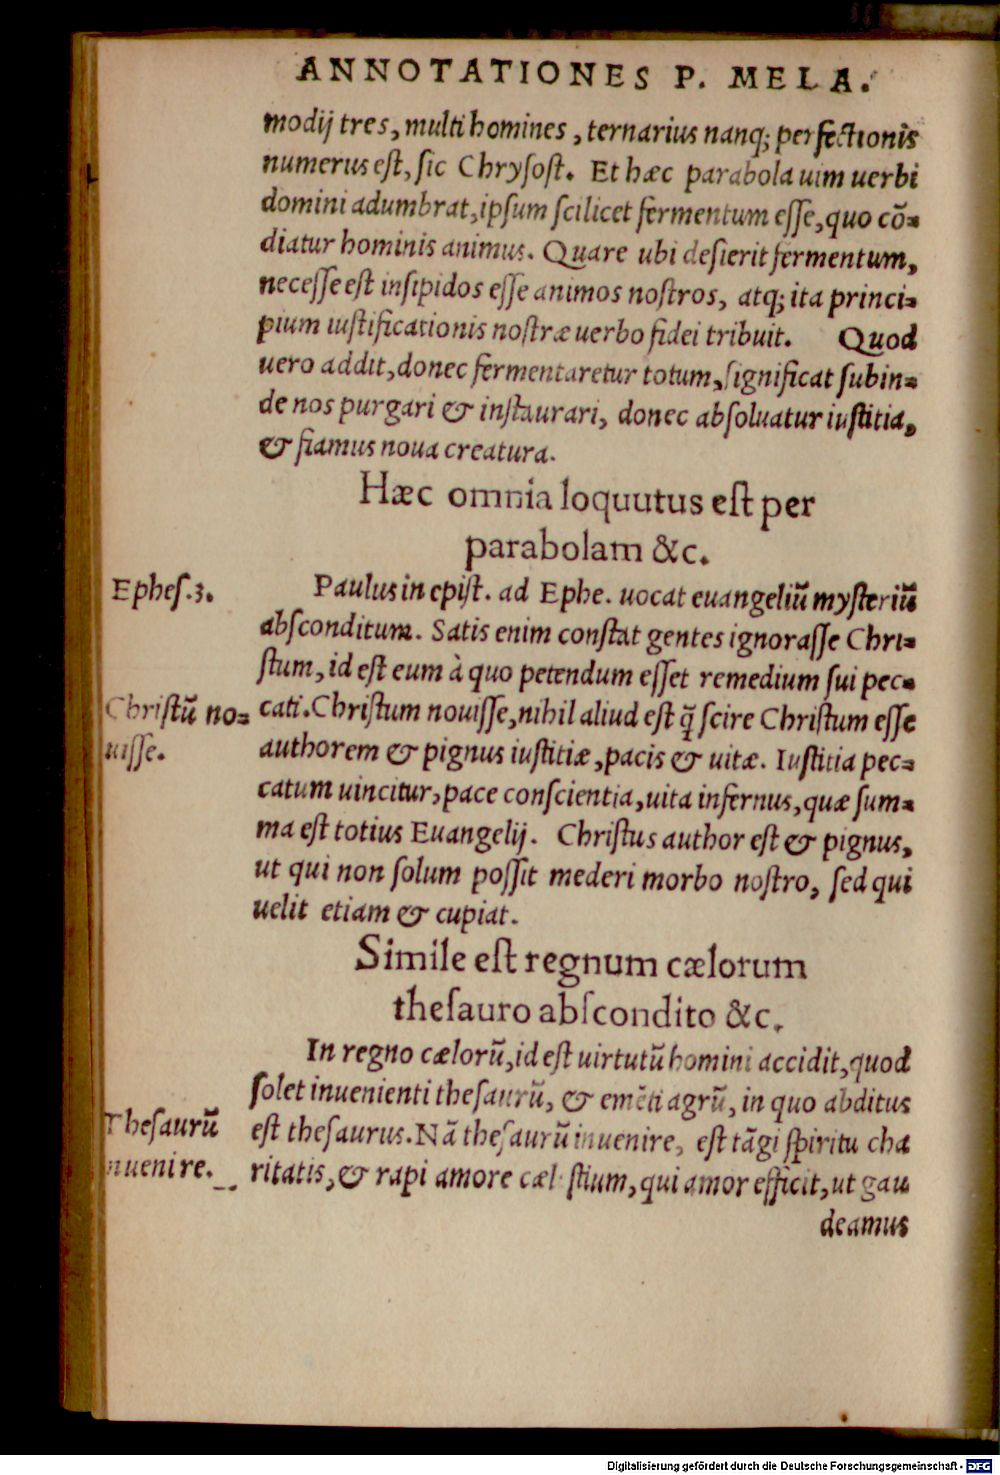 ANNOTATIONES P. MELA.
modij tres, multi homines, ternarius nanq; perfectionis
numerus est, sic Chrysost. Et hæc parabola uim uerbi
domini adumbrat, ipsum scilicet fermentum esse, quo cō-
diatur hominis animus. Quare ubi desierit fermentum,
necesse est insipidos esse animos nostros, atq; ita princi-
pium iustificationis nostræ uerbo fidei tribuit. Quod
uero addit, donec fermentaretur totum, significat subin-
de nos purgari & instaurari, donec absoluatur iustitia,
& fiamus noua creatura.
Hæc omnia loquutus est per
parabolam &c.
Ephes. 3.
Paulus in epist. ad Ephe. uocat euangeliū mysteriū
absconditum. Satis enim constat gentes ignorasse Chri-
stum, id est eum à quo petendum esset remedium sui pec-
Christū no-
uisse.
cati. Christum nouisse, nihil aliud est q̄ scire Christum esse
authorem & pignus iustitiæ, pacis & uitæ. Iustitia pec-
catum uincitur, pace conscientia, uita infernus, quæ sum-
ma est totius Euangelij. Christus author est & pignus,
ut qui non solum possit mederi morbo nostro, sed qui
uelit etiam & cupiat.
Simile est regnum cælorum
thesauro abscondito &c.
In regno cælorū, id est uirtutū homini accidit, quod
solet inuenienti thesaurū, & emēti agrū, in quo abditus
Thesaurū
inuenire.
est thesaurus. Nā thesaurū inuenire, est tāgi spiritu cha
ritatis, & rapi amore cælestium, qui amor efficit, ut gau
deamus
Digitalisierung gefördert durch die Deutsche Forschungsgemeinschaft - DFG